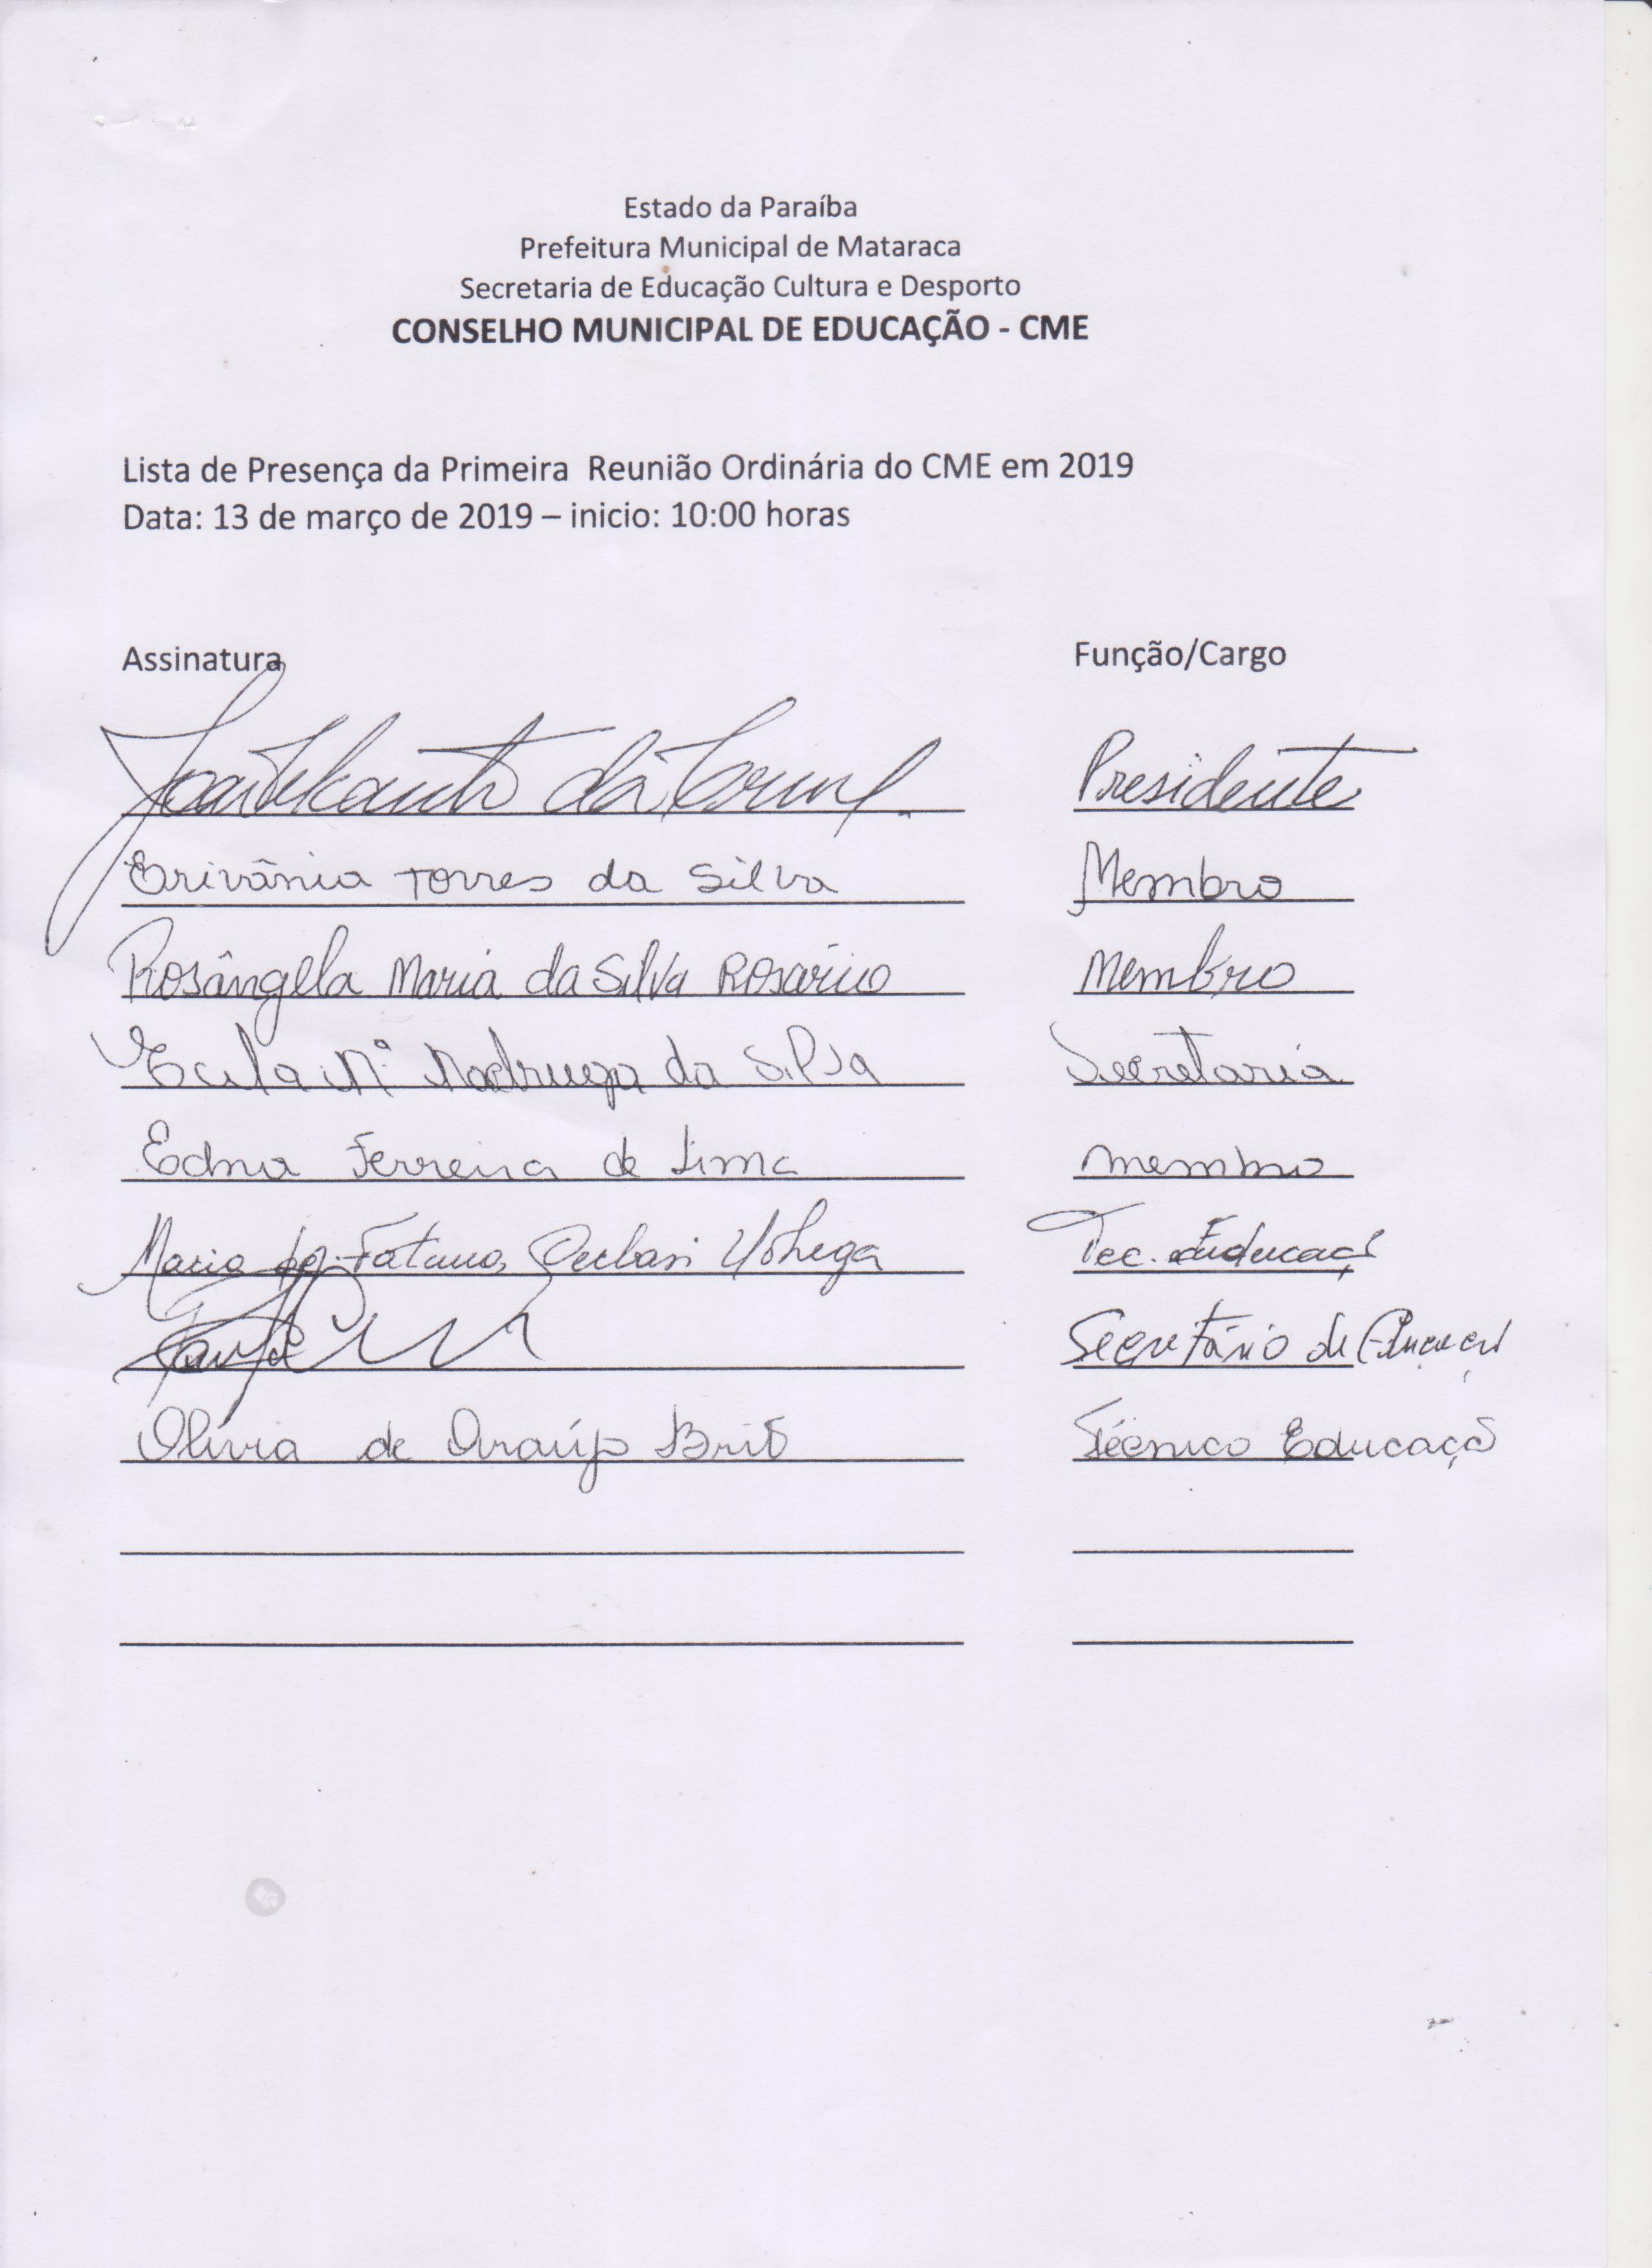 Estado da Paraíba
Prefeitura Municipal de Mataraca
Secretaria de Educação Cultura e Desporto
CONSELHO MUNICIPAL DE EDUCAÇÃO - CME
Lista de Presença da Primeira Reunião Ordinária do CME em 2019
Data: 13 de março de 2019 – inicio: 10:00 horas
Assinatura Função/Cargo
da Presidente
Erivânia Torres da Silva Membro
Rosângela Maria da Silva Rosário Membro
Mª Madruga da Silva Secretaria
Edna Ferreira de Lima membro
Maria de Fatima Tec. Educaçã
Secretário de
Olívia de Araújo Brito Técnico Educaçõ